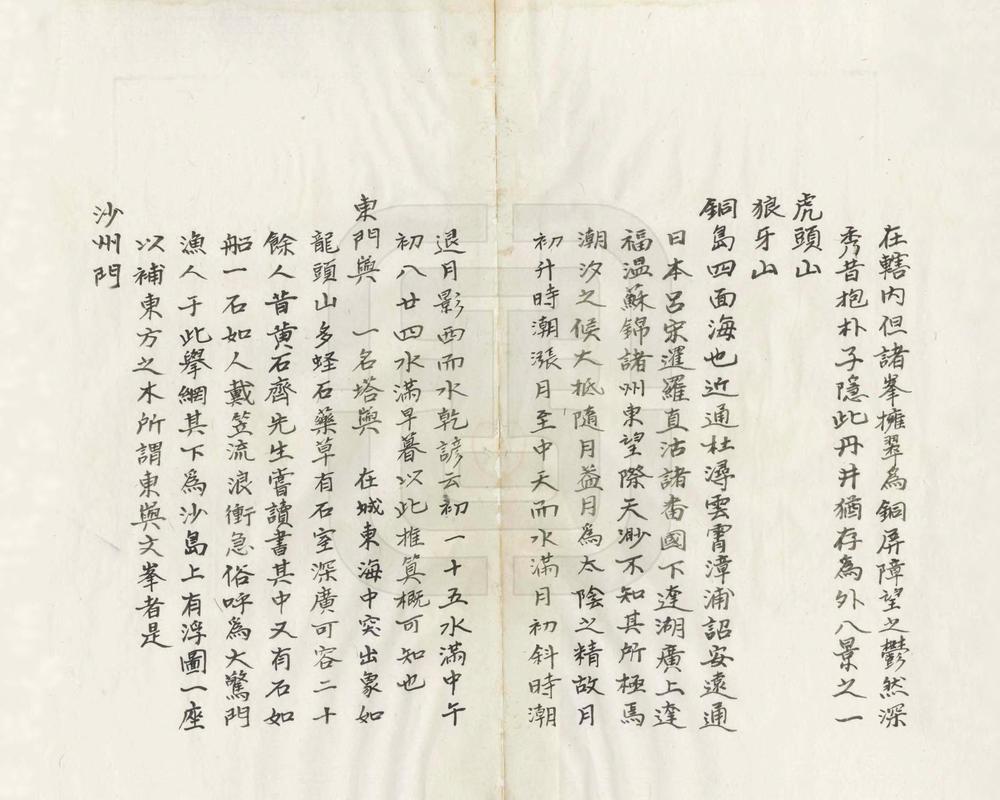 在轄内但諸峯擁翠為銅屏障望之鬱然深
秀昔抱朴子隱此丹井猶存為外八景之一
虎頭山
狼牙山
銅島四面海也近通杜潯雲霄漳浦詔安遠通
日本呂宋暹羅直沽諸畨國下達湖廣上達
福温蘇錦諸州東望際天渺不知其所極焉
潮汐之候大抵隨月葢月為太陰之精故月
初升時潮漲月至中天而水滿月初斜時潮
退月影西而水乾諺云初一十五水滿中午
初八廿四水滿早暮以此推算概可知也
東門嶼 一名塔嶼 在城東海中突出象如
龍頭山多蛏石藥草有石室深廣可容二十
餘人昔黄石齋先生嘗讀書其中又有石如
船一石如人戴笠流浪衝急俗呼為大驚門
漁人于此舉網其下為沙島上有浮圖一座
以補東方之木所謂東嶼文峯者是
沙州門